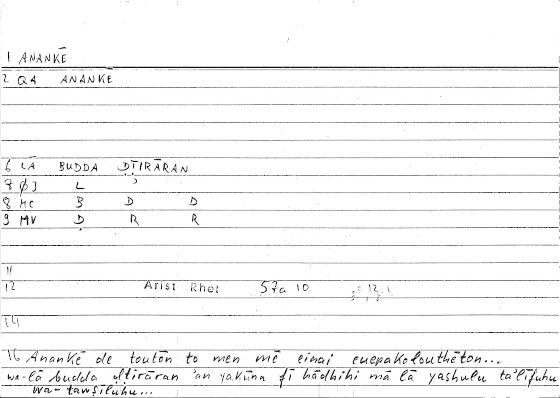 1 ANANKĒ
2 QA ANANKĒ
6 LĀ BUDDA ḌṬIRĀRAN
7 ∅3 L
8 MC B D D
9 MV Ḍ R R
11
12 Arist Rhet 57a 10
14
16 Anankē de toutōn to men mē einai euepakolouthēton...
wa-lā budda ḍṭirāran 'an yakūna fī hādhihi mā lā yashulu ta'līfuhu
wa-tawṣīluhu...